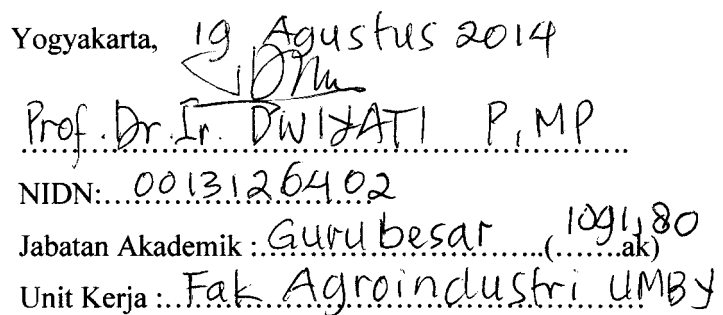 Yogyakarta, 19 Agustus 2014
Prof. Dr. Ir. DWIYATI P, MP
NIDN: 0013126402
Jabatan Akademik : Guru besar (1091,80 ak)
Unit Kerja : Fak Agroindustri UMBY